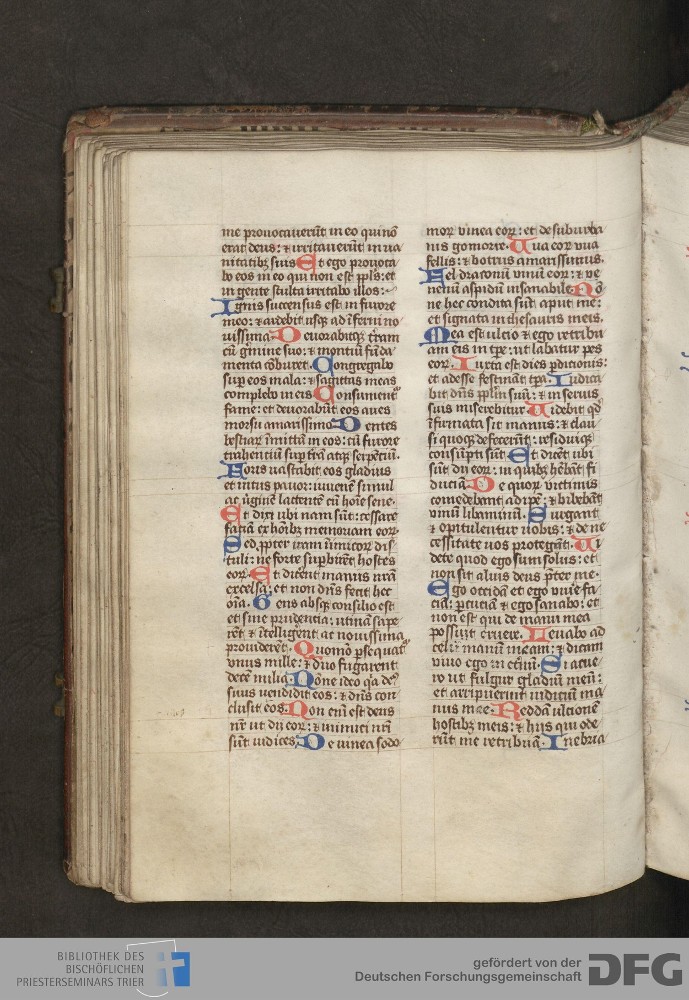 me prouocauerūt in eo qui nō
erat deus: ⁊ irritauerūt in ua
nitatibꝫ suis Et ego prouoca
bo eos in eo qui non est ppl̄s: et
in gente stulta irritabo illos:
Ignis succensus est in furore
meo: ⁊ ardebit usqꝫ ad īferni no
uissima. Deuorabitqꝫ t̄ram
cū ḡmine suo: ⁊ montiū fūda
menta cōburet. Congregabo
sup eos mala: ⁊ sagittas meas
complebo in eis Consument᷑
fame: et deuorabūt eos aues
morsu amarissimo Dentes
bestiaꝝ īmittā in eos: cū furore
trahentiū sup t̄rā atqꝫ serpētiū.
Foris uastabit eos gladius
et intus pauor: iuuenem simul
ac ūginē lactentē cū hoīe sene.
Et dixi ubi nam sūt: cessare
faciā ex hoībꝫ memoriam eoꝝ.
Sed ꝓpter iram īimicoꝝ dis
tuli: ne forte supbirēt hostes
eoꝝ. Et dicent manus nr̄a
excelsa: et non dn̄s fecit hec
oīa. Gens absqꝫ consilio est
et sine prudentia: utinā sape
rēt ⁊ ītelligerēt ac nouissima
prouiderēt. Quomō ꝑsequat᷑
vnus mille: ⁊ duo fugarent
decē milia Nōne ideo qa de⁹
suus vendidit eos: ⁊ dn̄s con
clusit eos. Non eni est deus
nr̄ ut dij eoꝝ: ⁊ inimici nr̄i
sūt iudices. De uinea sodo
moꝝ vinea eoꝝ: et de suburba
nis gomorre. Uua eoꝝ vua
fellis: ⁊ botrus amarissimus.
Fel draconū vinū eoꝝ: ⁊ ve
nenū aspidū insanabile Nō
ne hec condita sūt aput me:
et signata in thesauris meis.
Mea est ulcio ⁊ ego retribu
am eis in tp̄e: ut labatur pes
eoꝝ. Iuxta est dies ꝑditionis:
et adesse festināt tp̄a. Iudica
bit dn̄s pplm̄ suū: ⁊ in seruis
suis miserebitur Uidebit qd̄
īfirmata sit manus: ⁊ clau
si quoqꝫ defecerūt: residuiqꝫ
consūpti sūt Et dicēt ubi
sūt dij eoꝝ: in quibꝫ hēbāt fi
duciā De quoꝝ victimis
comedebant adipē: ⁊ bibebāt
vinū libaminū. Surgant
⁊ opitulentur uobis: ⁊ de ne
cessitate uos protegāt. Ui
dete quod ego sum solus: et
non sit alius deus p̄ter me.
Ego occidā et ego viue͂ fa
ciā: ꝑcutiā ⁊ ego sanabo: et
non est qui de manu mea
possit eruere. Leuabo ad
celū manū meam: ⁊ dicam
viuo ego in et̄nū. Si acue
ro ut fulgur gladiū meū:
et arripuerit iudiciū ma
nus mee Reddā ulcionē
hostibꝫ meis: ⁊ hijs qui ode
rūt me retribuā. Inebria
BIBLIOTHEK DES
BISCHÖFLICHEN
PRIESTERSEMINARS TRIER
gefördert von der
Deutschen Forschungsgemeinschaft
DFG